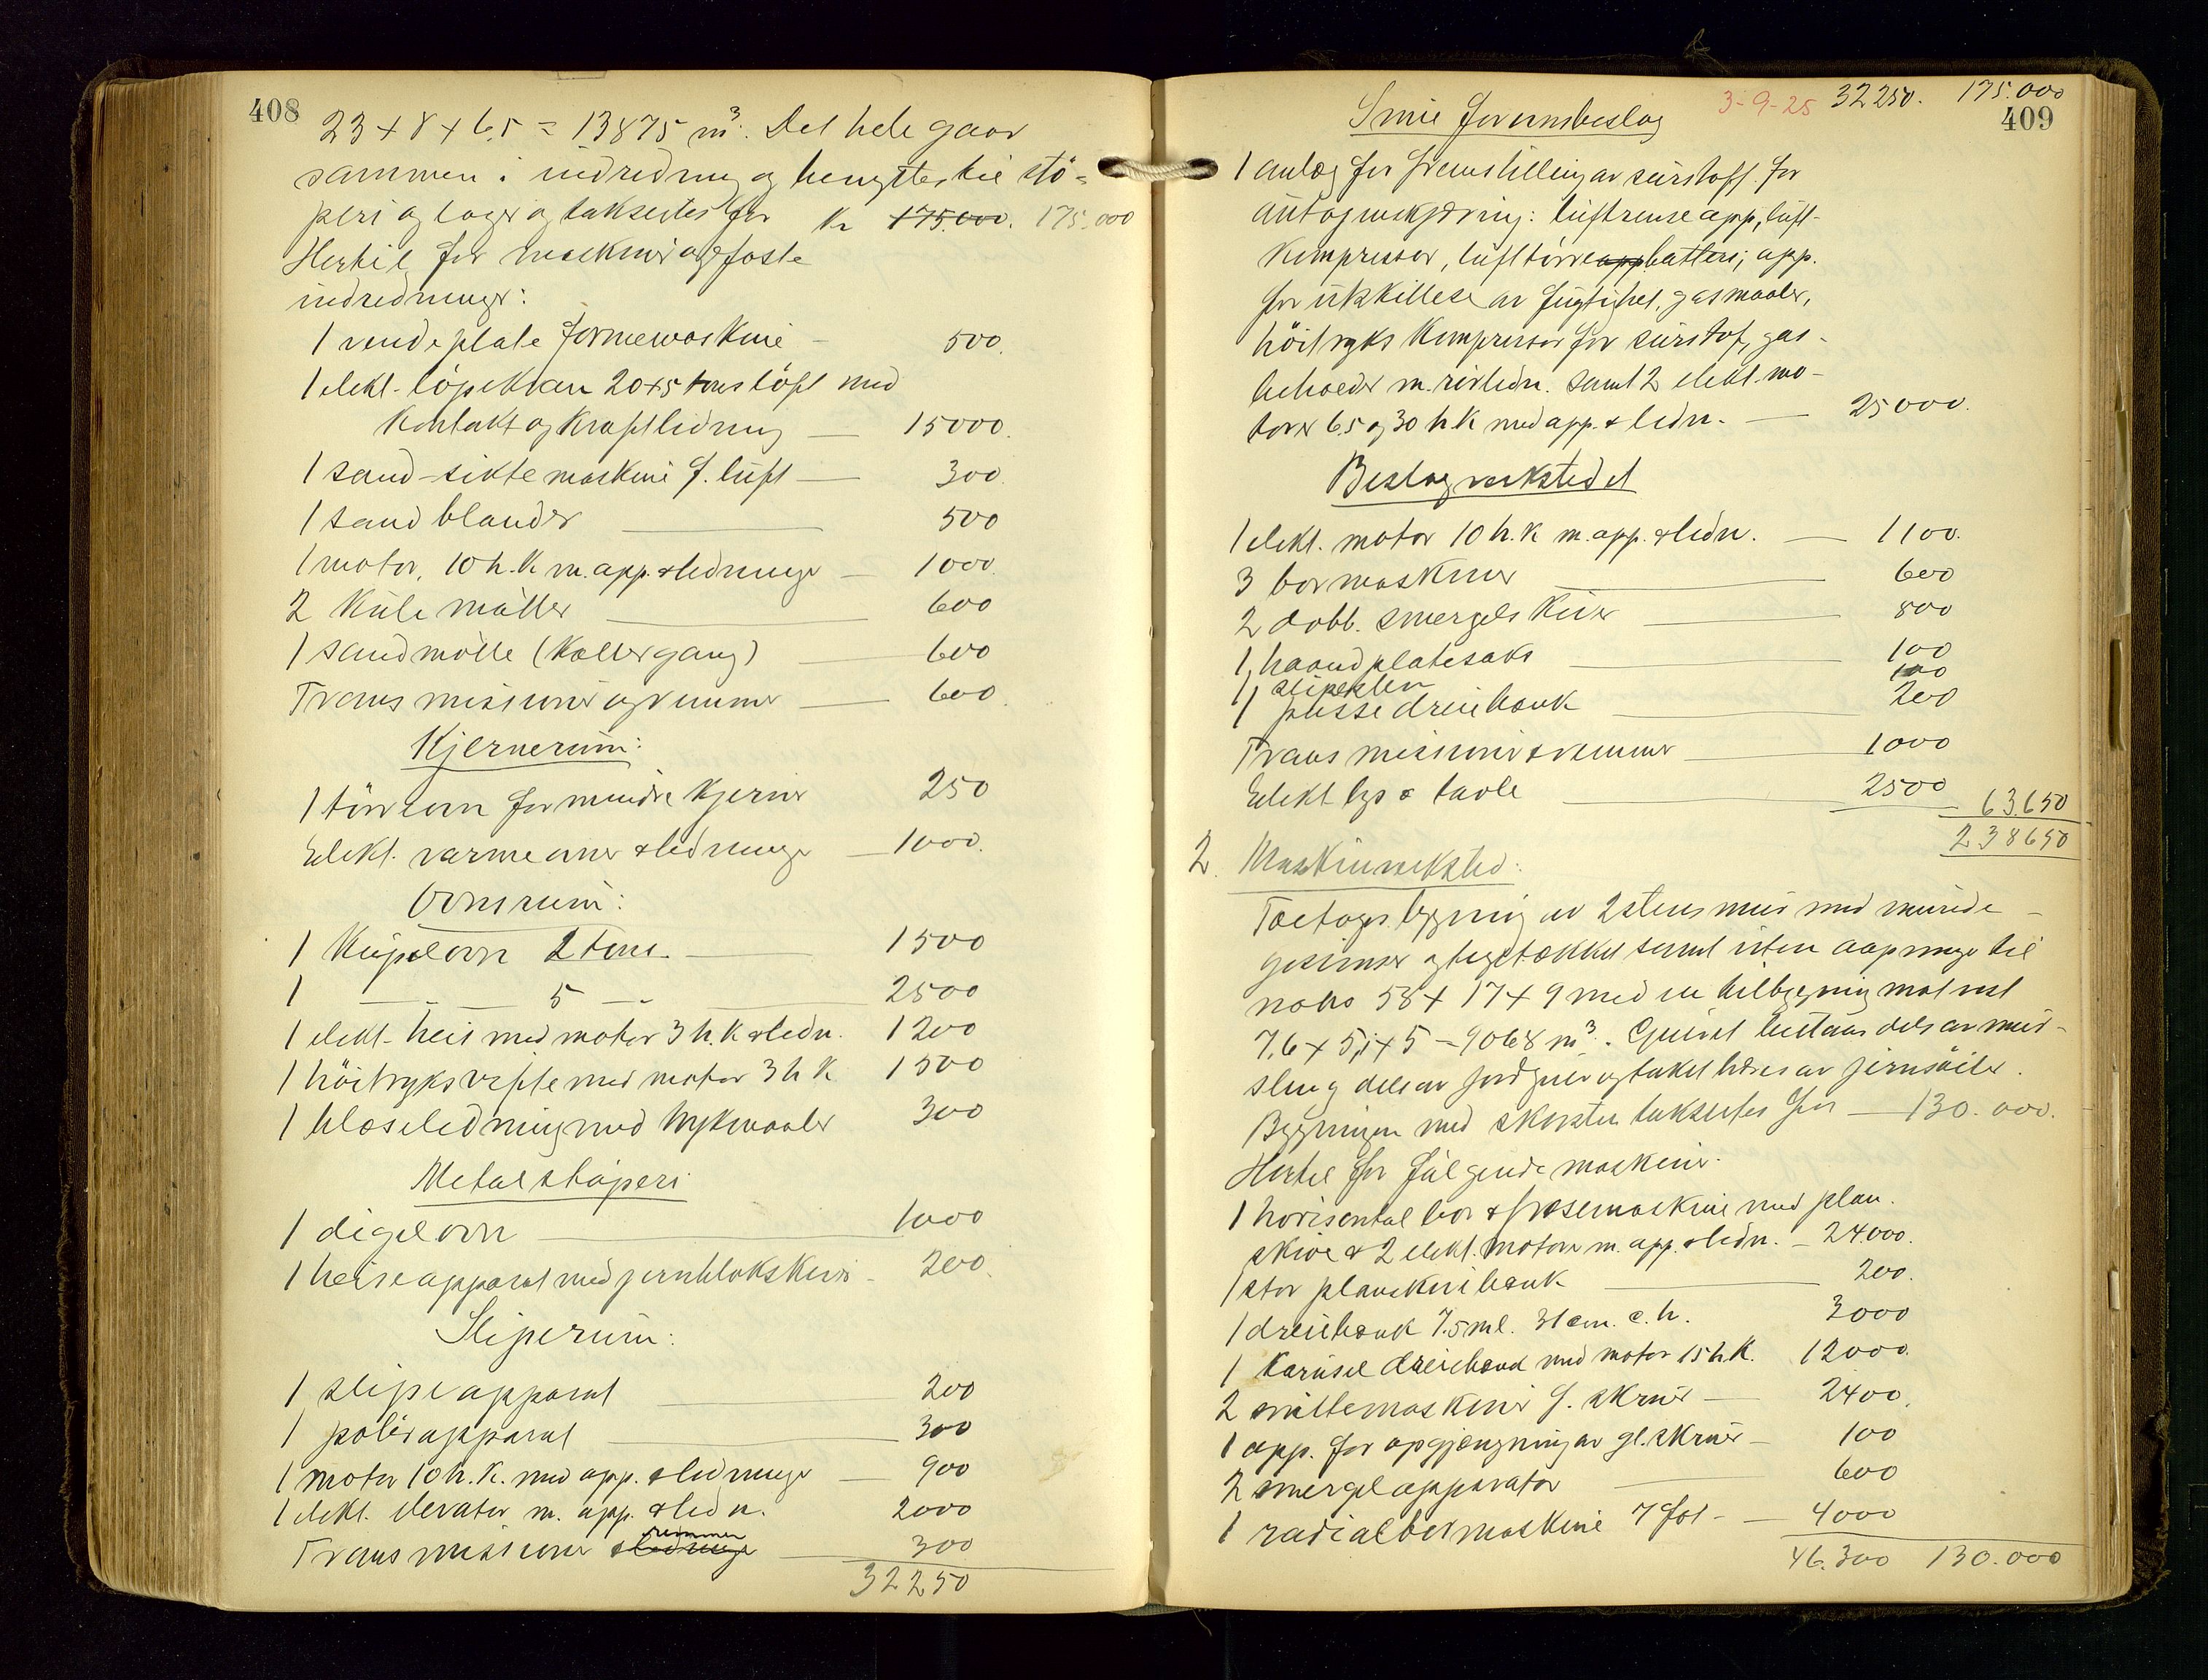 408
23 + 8 + 6,5 = 13875 m³. Det hele gaar
sammen i indredning og benyttes til stö=
peri og lager og takseres for kr 175.000. 175.000
Hertil for maskiner og faste
indredninger:
1 vendeplate formemaskine - 500.
1 elekt. löpekran 20+5 tons löft med
kontakt og kraftledning — 15000.
1 sand-siktemaskine f. luft — 300.
1 sandblander — 500
1 motor, 10 h.k m. app. & ledninger — 1000.
2 kulemöller — 600
1 sandmölle (Kollergang) — 600
Transmissioner og remmer — 600.
Kjernerum:
1 törreovn for mindre kjerner 250
Elekt. varmeovner & ledninger — 1000.
Ovnsrum:
1 Kupolovn 2 tons. — 1500
1 — " — 5 — " — 2500
1 elekt. heis med motor 3 h.k & ledn. 1200
1 höitryksvifte med motor 3 h k 1500
1 blæseledning med trykmaaler 300
Metalstöperi
1 digelovn — 1000
1 heiseapparat med jernblokskiver - 200.
Sliperum:
1 slipeapparat — 200
1 polérapparat — 300
1 motor 10 h.k. med app. & ledninger — 900
1 elekt. elevator m. app. & ledn. 2000
remmer
Transmissioner & ledninger — 300
32250
3-9-25 32250. 175.000
409
Smie for ovnsbeslag
1 anlæg for fremstilling av surstoff for
autogenskjæring: luftrense app, luft-
kompressor, lufttörreapp batteri, app.
for utskillese av fugtighet, gasmaaler,
höitryks kompressor for surstof, gas-
beholder m. rörledn. samt 2 elekt. mo-
torer 65 og 30 h k med app. & ledn. — 25000.
Beslagverkstedet
1 elekt. motor 10 h.k m. app. & ledn. — 1100.
3 bormaskiner — 600
2 dobb. smergelskiver — 800
1 haandplatesaks — 100
1 slipesten 100
1 pussedreiebænk — 200
Transmissioner & remmer — 1000
Elekt lys & tavle — 2500 63.650
238650
2. Maskinverksted:
Toetages bygning av 2 stens mur med murede
gesimser og tegltækket samt uten aapninger til
nabo 58 + 17 + 9 med en tilbygning mot vest
7,6 + 5,1 + 5 = 9068 m³. Gulvet bestaar dels av mur-
sten og dels av jordgulv og taket bæres av jernsöiler.
Bygningen med skorsten takseres for — 130.000.
Hertil for fölgende maskiner:
1 horisontal bor & fræsemaskine med plan-
skive & 2 elekt. motorer m. app. & ledn. — 24.000.
1 stor planskivebænk — 200.
1 dreiebænk 7.5 ml. 31 cm. c. h. 3000
1 karusel dreiebænk med motor 15 h.k. 12000.
2 snittemaskiner f. skruer — 2400.
1 app. for opgjængning av gl. skruer — 100
2 smergelapparater — 600
1 radialbormaskine 7 fot - — 4000
46.300 130.000